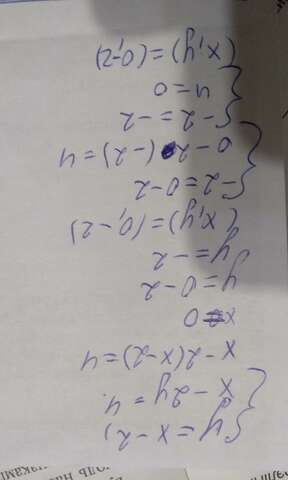 y = x - 2)
x - 2y = 4.
x - 2(x-2) = 4
x = 0
y = 0 - 2
y = - 2
(x,y) = (0,-2)
-2 = 0 - 2
0 - 2 (-2) = 4
-2 = -2
4 = 0
(x,y) = (0,-2)